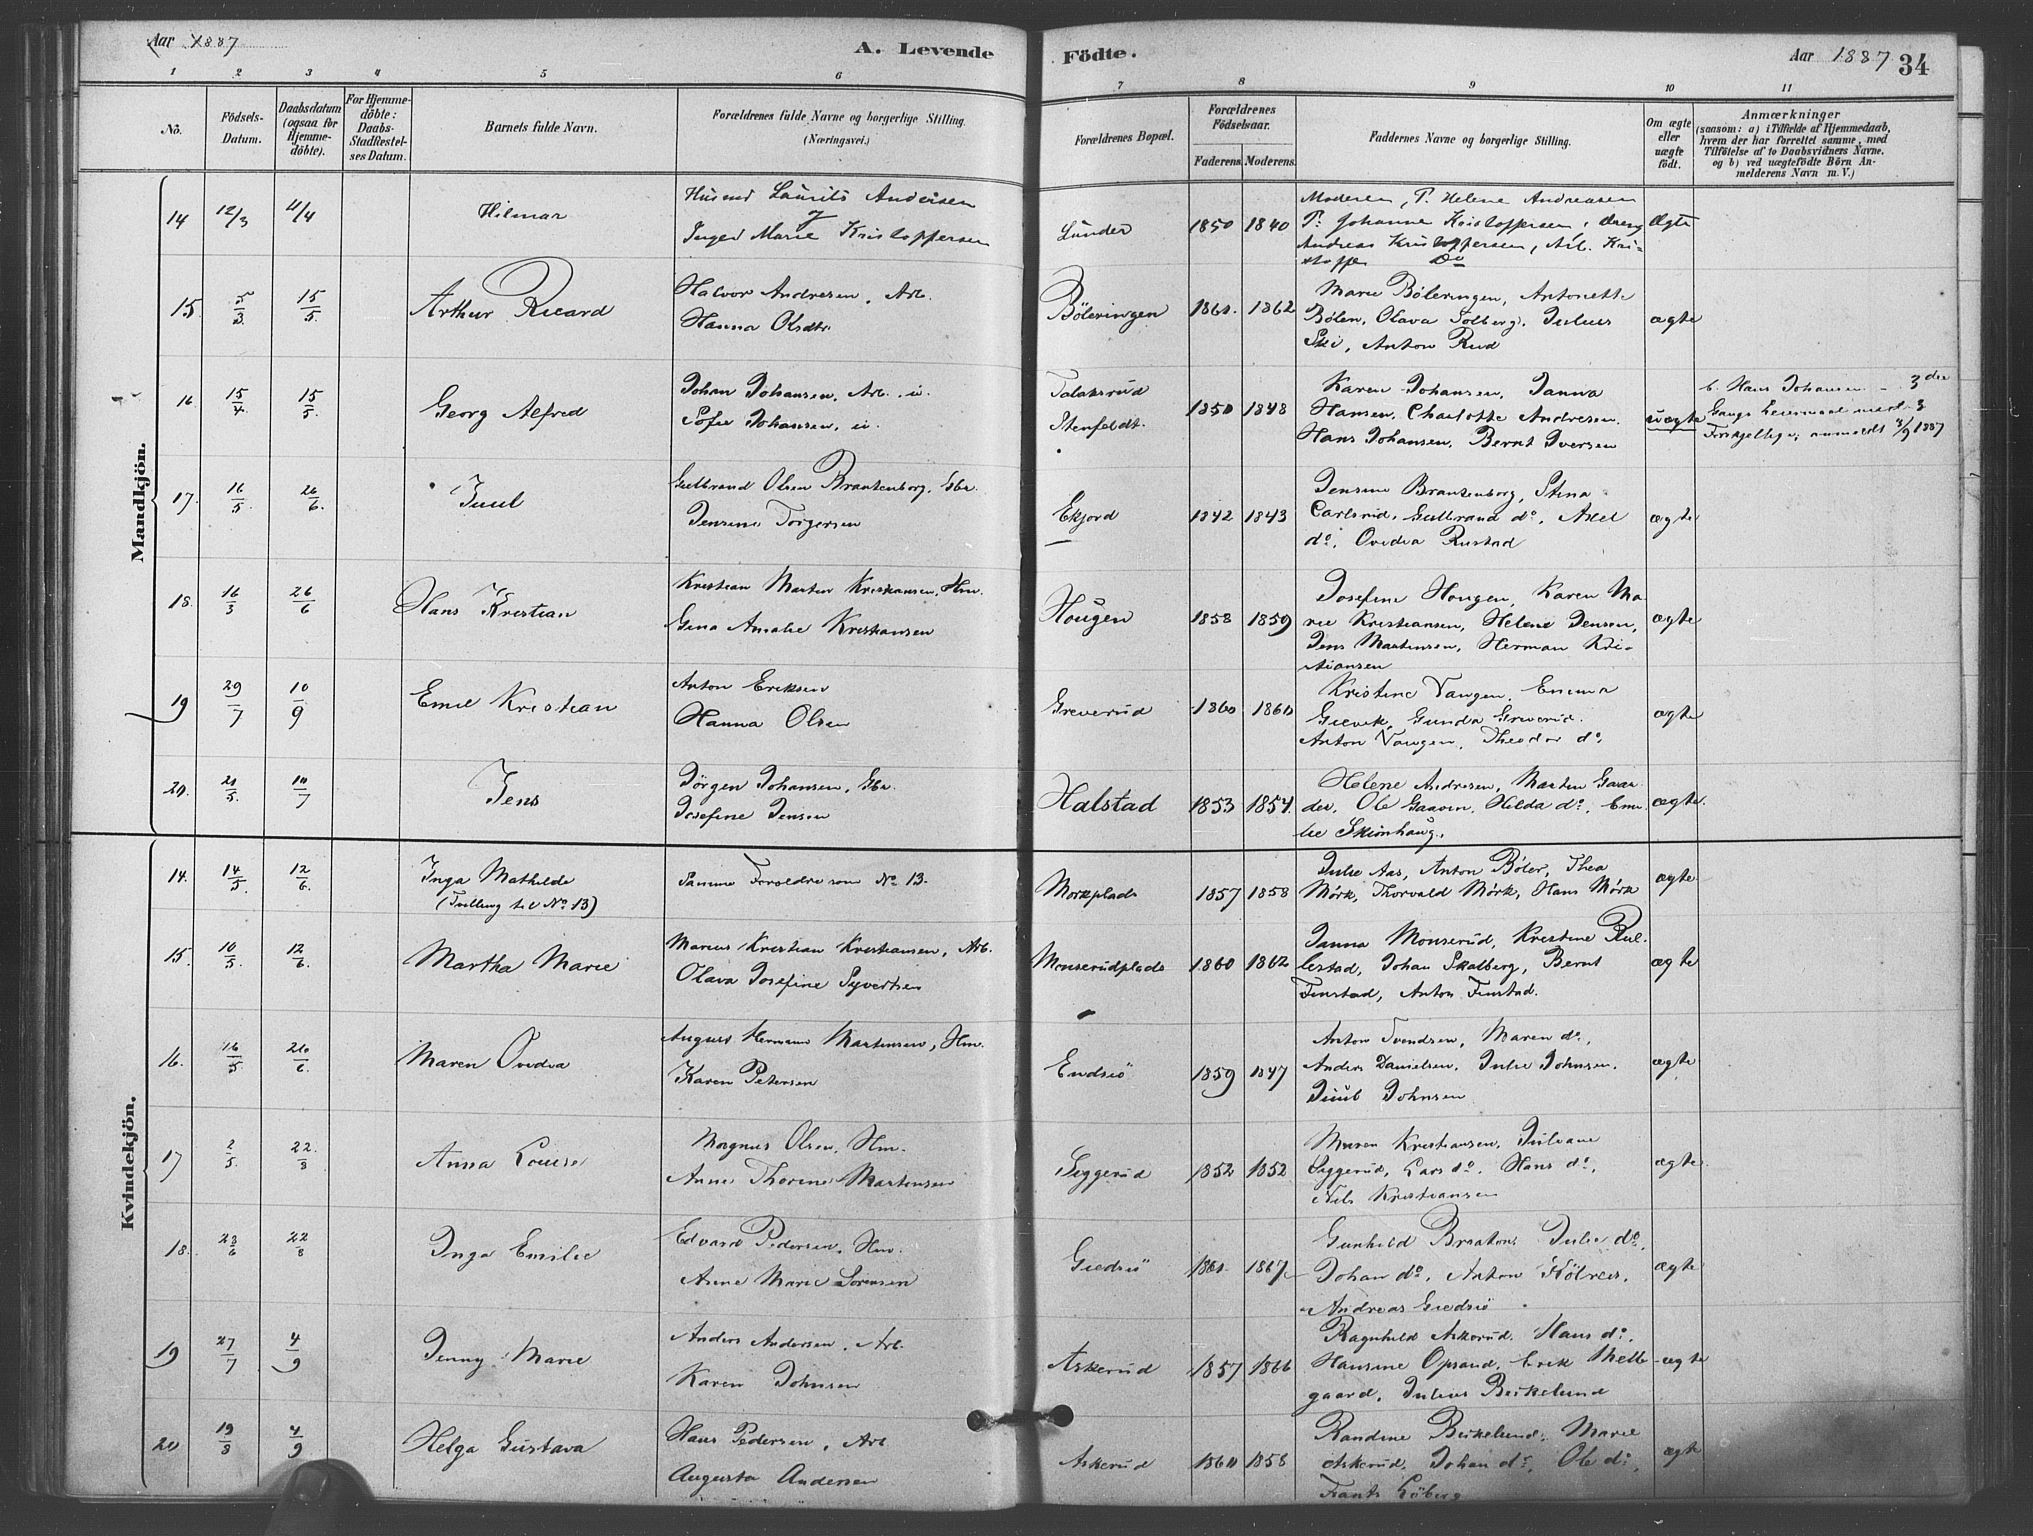 Aar 1887
A. Levende
Födte.
Aar 1887 34
1 2 3 4 5 6 7 8 9 10 11
No.
Födsels-
Datum.
Daabsdatum
(ogsaa for
Hjemme-
döbte).
For Hjemme-
döbte:
Daabs-
Stadfæstel-
ses Datum.
Barnets fulde Navn.
Forældrenes fulde Navne og borgerlige Stilling.
(Næringsvei.)
Forældrenes Bopæl.
Forældrenes
Födselsaar.
Faderens. Moderens.
Faddernes Navne og borgerlige Stilling.
Om ægte
eller
uægte
født.
Anmærkninger
(saasom: a) i Tilfælde af Hjemmedaab,
hvem der har forrettet samme, med
Tilföielse af to Daabsvidners Navne.
og b) ved uægtefödte Börn An-
melderens Navn m. V.)
Mandkjön.
14 12/3 11/4 Hilmar
Husmd Laurits Andersen
Inger Marie Kristoffersen
Lunder 1850 1840
Moderen, P. Helene Andreasen
P. Johanne Kristoffersen, Dreng
Andreas Kristoffersen, Arb. Kri-
stoffer Do
Ægte
15. 5/3 15/5. Arthur Ricard
Halvor Andresen, Arb.
Hanna Olsdtr.
Böleringen 1861. 1862
Marie Böleringen, Antonette
Bölen, Olava Solberg, Julius
Ski, Anton Rud
ægte
16. 15/4. 15/5. Georg Alfred
Johan Johansen, Arb. u.
Sofie Johansen, u.
Talaksrud
Stenfeldt. 1850 1848
Karen Johansen, Janna
Hansen, Charlotte Andresen.
Hans Johansen, Bernt Iversen
uægte
b. Hans Johansen - 3die
Gangs Leiermaal med 3
Forskjellige, anmeldt 4/9 1887
17. 16/5. 26/6. Juul
Gulbrand Olsen Brantenborg, Gbr.
Jensine Torgersen
Ekjord 1842 1843
Jensine Brantenborg, Stina
Carlsrud, Gulbrand do, Axel
do, Ovedia Rustad
ægte
18. 16/3 26/6 Hans Kristian
Kristian Martin Kristiansen, Hm.
Gina Amalie Kristiansen
Hougen 1858 1859
Josefine Hougen, Karen Ma
rie Kristiansen, Helene Jensen,
Jens Martinsen, Herman Kri-
stiansen
ægte
19 29/7 10/9 Emil Kristian
Anton Eriksen
Hanna Olsen
Greverud 1860 1860
Kristine Vangen, Emma
Gievik, Gunda Greverud.
Anton Vangen, Theodor do.
ægte
20. 21/5. 10/7 Jens
Jörgen Johansen, Gbr.
Josefine Jensen
Halstad 1853 1854.
Helene Andresen, Martin Gaar
der, Ole Gaaven, Hilda do, Emi-
lie Skiönhaug.
ægte.
Kvindekjön.
14. 14/5. 12/6. Inga Mathilde
(Tvilling til No 13)
Samme Foreldre som No 13.
Morkplads 1857 1858
Julie Aas, Anton Böler, Thea
Mörk, Thorvald Mörk, Hans Mörk
ægte
15. 10/5. 12/6. Martha Marie
Marius Kristian Kristiansen, Arb.
Olava Josefine Syvertsen
Monserudplads 1860 1862
Janna Monserud, Kristine Rul-
lestad, Johan Skalberg, Bernt
Finstad, Anton Finstad.
ægte
16. 16/5 26/6. Maren Ovidia
August Herman Martinsen, Hm.
Karen Petersen
Endsiö 1859 1847
Anton Svendsen, Maren do,
Anders Danielsen, Julie Johnsen.
Juul Johnsen
ægte
17 2/5. 22/8 Anna Louise
Magnus Olsen, Hm.
Anne Thorine Martinsen
Siggerud 1852 1852
Maren Kristiansen, Juliane
Siggerud, Lars do. Hans do,
Nils Kristiansen
ægte
18. 23/6 22/8 Inga Emilie
Edvard Pedersen, Hm.
Anne Marie Sörensen
Giedsiö 1861. 1867
Gunhild Braaten, Julie do.
Johan do. Anton Hölvees,
Andreas Giedsiö
ægte
19 27/7 4/9 Jenny Marie
Anders Andersen, Arb.
Karen Johnsen
Askerud 1857 1866
Ragnhild Askerud. Hans do.
Hansine Opsand, Erik Mell-
gaard, Julius Birkelund
ægte
20 19/8 4/9 Helga Gustava
Hans Pedersen, Arb
Augusta Andersen
Askerud 1860 1858
Randine Birkelund, Marie
Askerud, Johan do, Ole do,
Frants Löberg
ægte